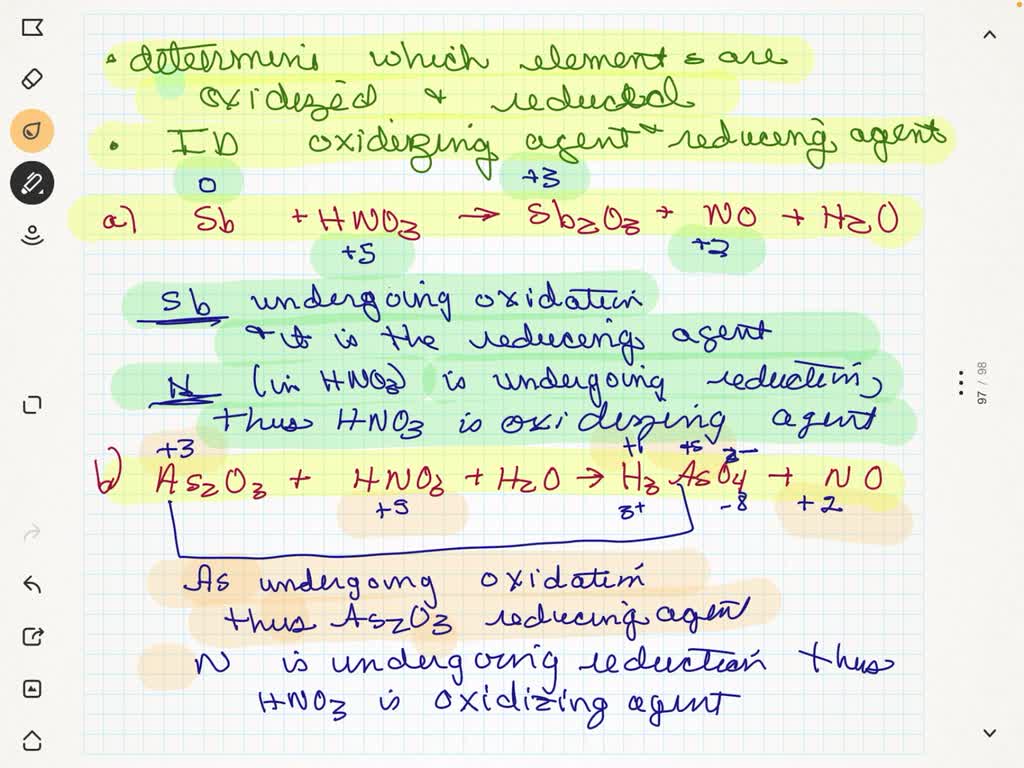 • determine which elements are
oxidized & reducted
• ID oxidizing agent & reducing agent
0 +3
a) Sb + HNO3 → Sb2O3 + NO + H2O
+5 +2
Sb undergoing oxidation
& it is the reducing agent
N (in HNO3) is undergoing reduction,
thus HNO3 is oxidizing agent
+3 +1 +5 2-
b) As2O3 + HNO3 + H2O → H3AsO4 + NO
+5 3+ -8 +2
As undergoing oxidation
thus As2O3 reducing agent
N is undergoing reduction thus
HNO3 is oxidizing agent
97 / 98